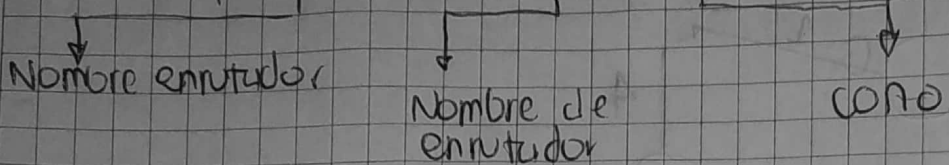 Nombre enrutador
Nombre de
enrutador